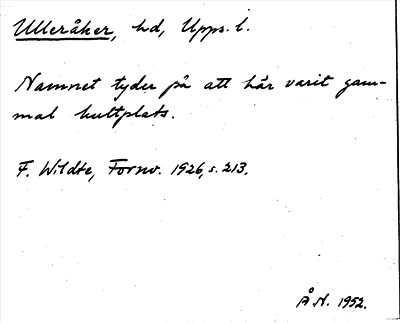 Ulleråker, hd, Upps. l.
Namnet tyder på att här varit gam-
mal kultplats.
F. Wildte, Fornv. 1926, s. 213.
Å.N. 1952.